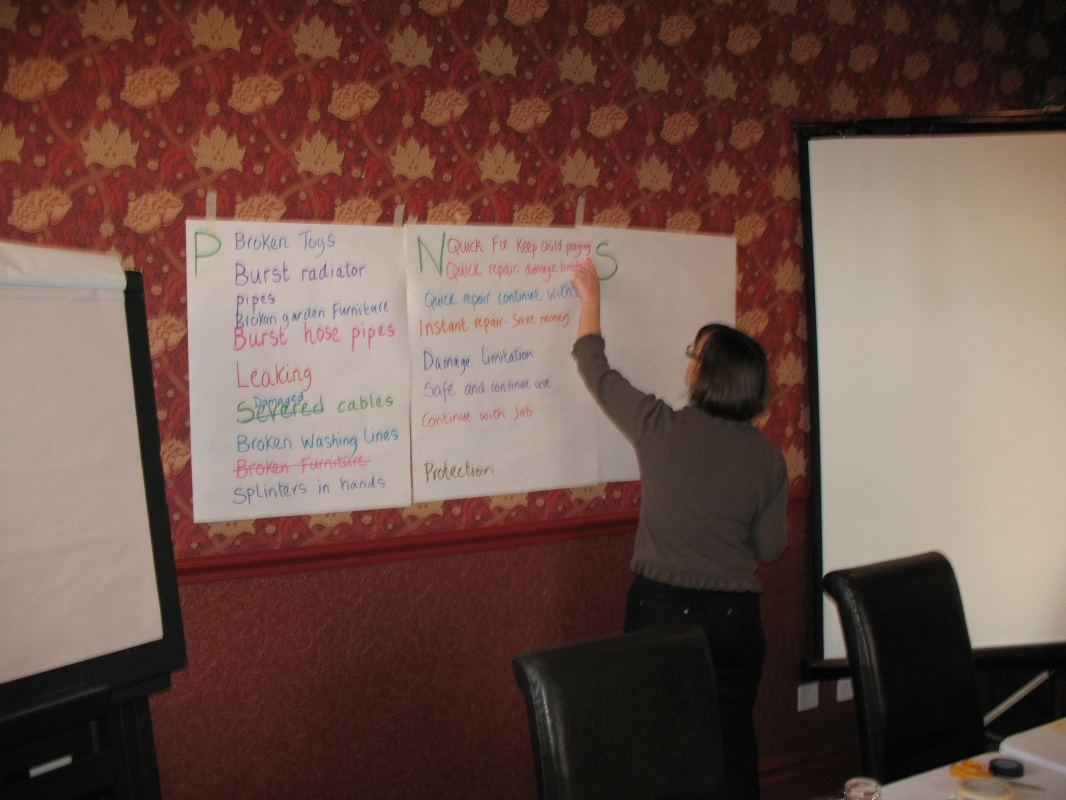 P
Broken Toys
Burst radiator
pipes
Broken garden Furniture
Burst hose pipes
Leaking
Damaged
Severed cables
Broken Washing Lines
Broken Furniture
Splinters in hands
N
Quick Fix Keep child playing
Quick repair damage
Quick repair continue with
Instant repair. Save money
Damage limitation
Safe and continue use
Continue with Job
Protection
S